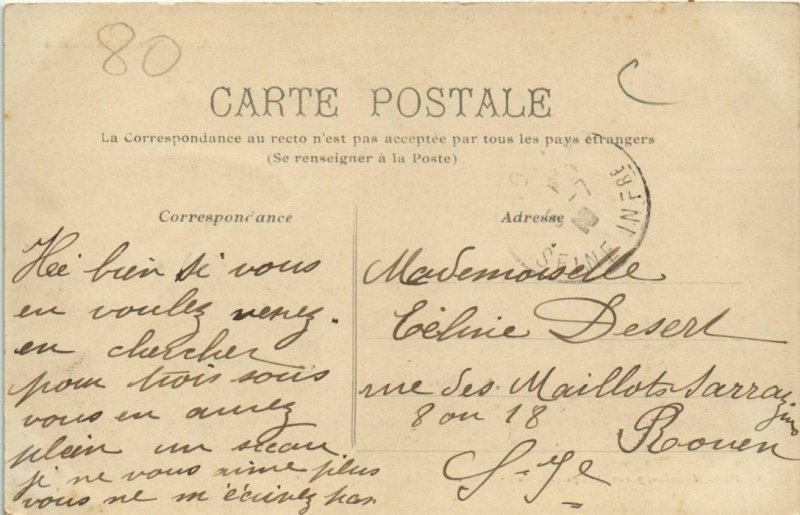 80
CARTE POSTALE
La Correspondance au recto n'est pas acceptée par tous les pays étrangers
(Se renseigner à la Poste)
Correspondance
Adresse
SEINE INFRE
Hé bien si vous
en voulez venez
en chercher
pour trois sous
vous en aurez
plein un seau
je ne vous aime plus
vous ne m'écrivez pas
Mademoiselle
Céline Desert
rue des Maillots Sarrazins
8 ou 18
Rouen
S-Ie